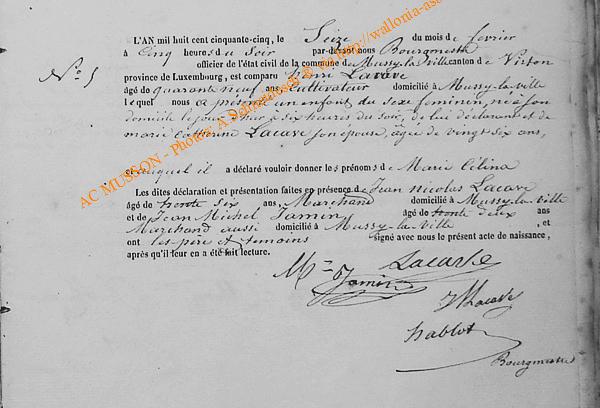 N° 5
L'AN mil huit cent cinquante-cinq, le Seize du mois de février
à Cinq heures du Soir par-devant nous Bourgmestre
officier de l'état civil de la commune de Mussy-la-ville canton de Virton
province de Luxembourg, est comparu henri Lacave
âgé de quarante neuf ans Cultivateur domicilié à Mussy-la-ville
lequel nous a présenté un enfant du sexe feminin, né à son
domicile le jour d'hier à six heures du soir, de lui déclarant et de
marie Catherine Lacave son épouse, âgée de vingt six ans,
et auquel il a déclaré vouloir donner les prénoms de Marie Célina
Les dites déclaration et présentation faites en présence de Jean Nicolas Lacave
âgé de trente six ans, Marchand domicilié à Mussy-la-ville
et de Jean Michel Jamin âgé de trente deux ans
Marchand aussi domicilié à Mussy-la-ville, et
ont les père et témoins signé avec nous le présent acte de naissance,
après qu'il leur en a été fait lecture.
Lacave
Jamin
Lacave
hablot
Bourgmestre
AC MUSSON - Photos: A. http://wallonia-as